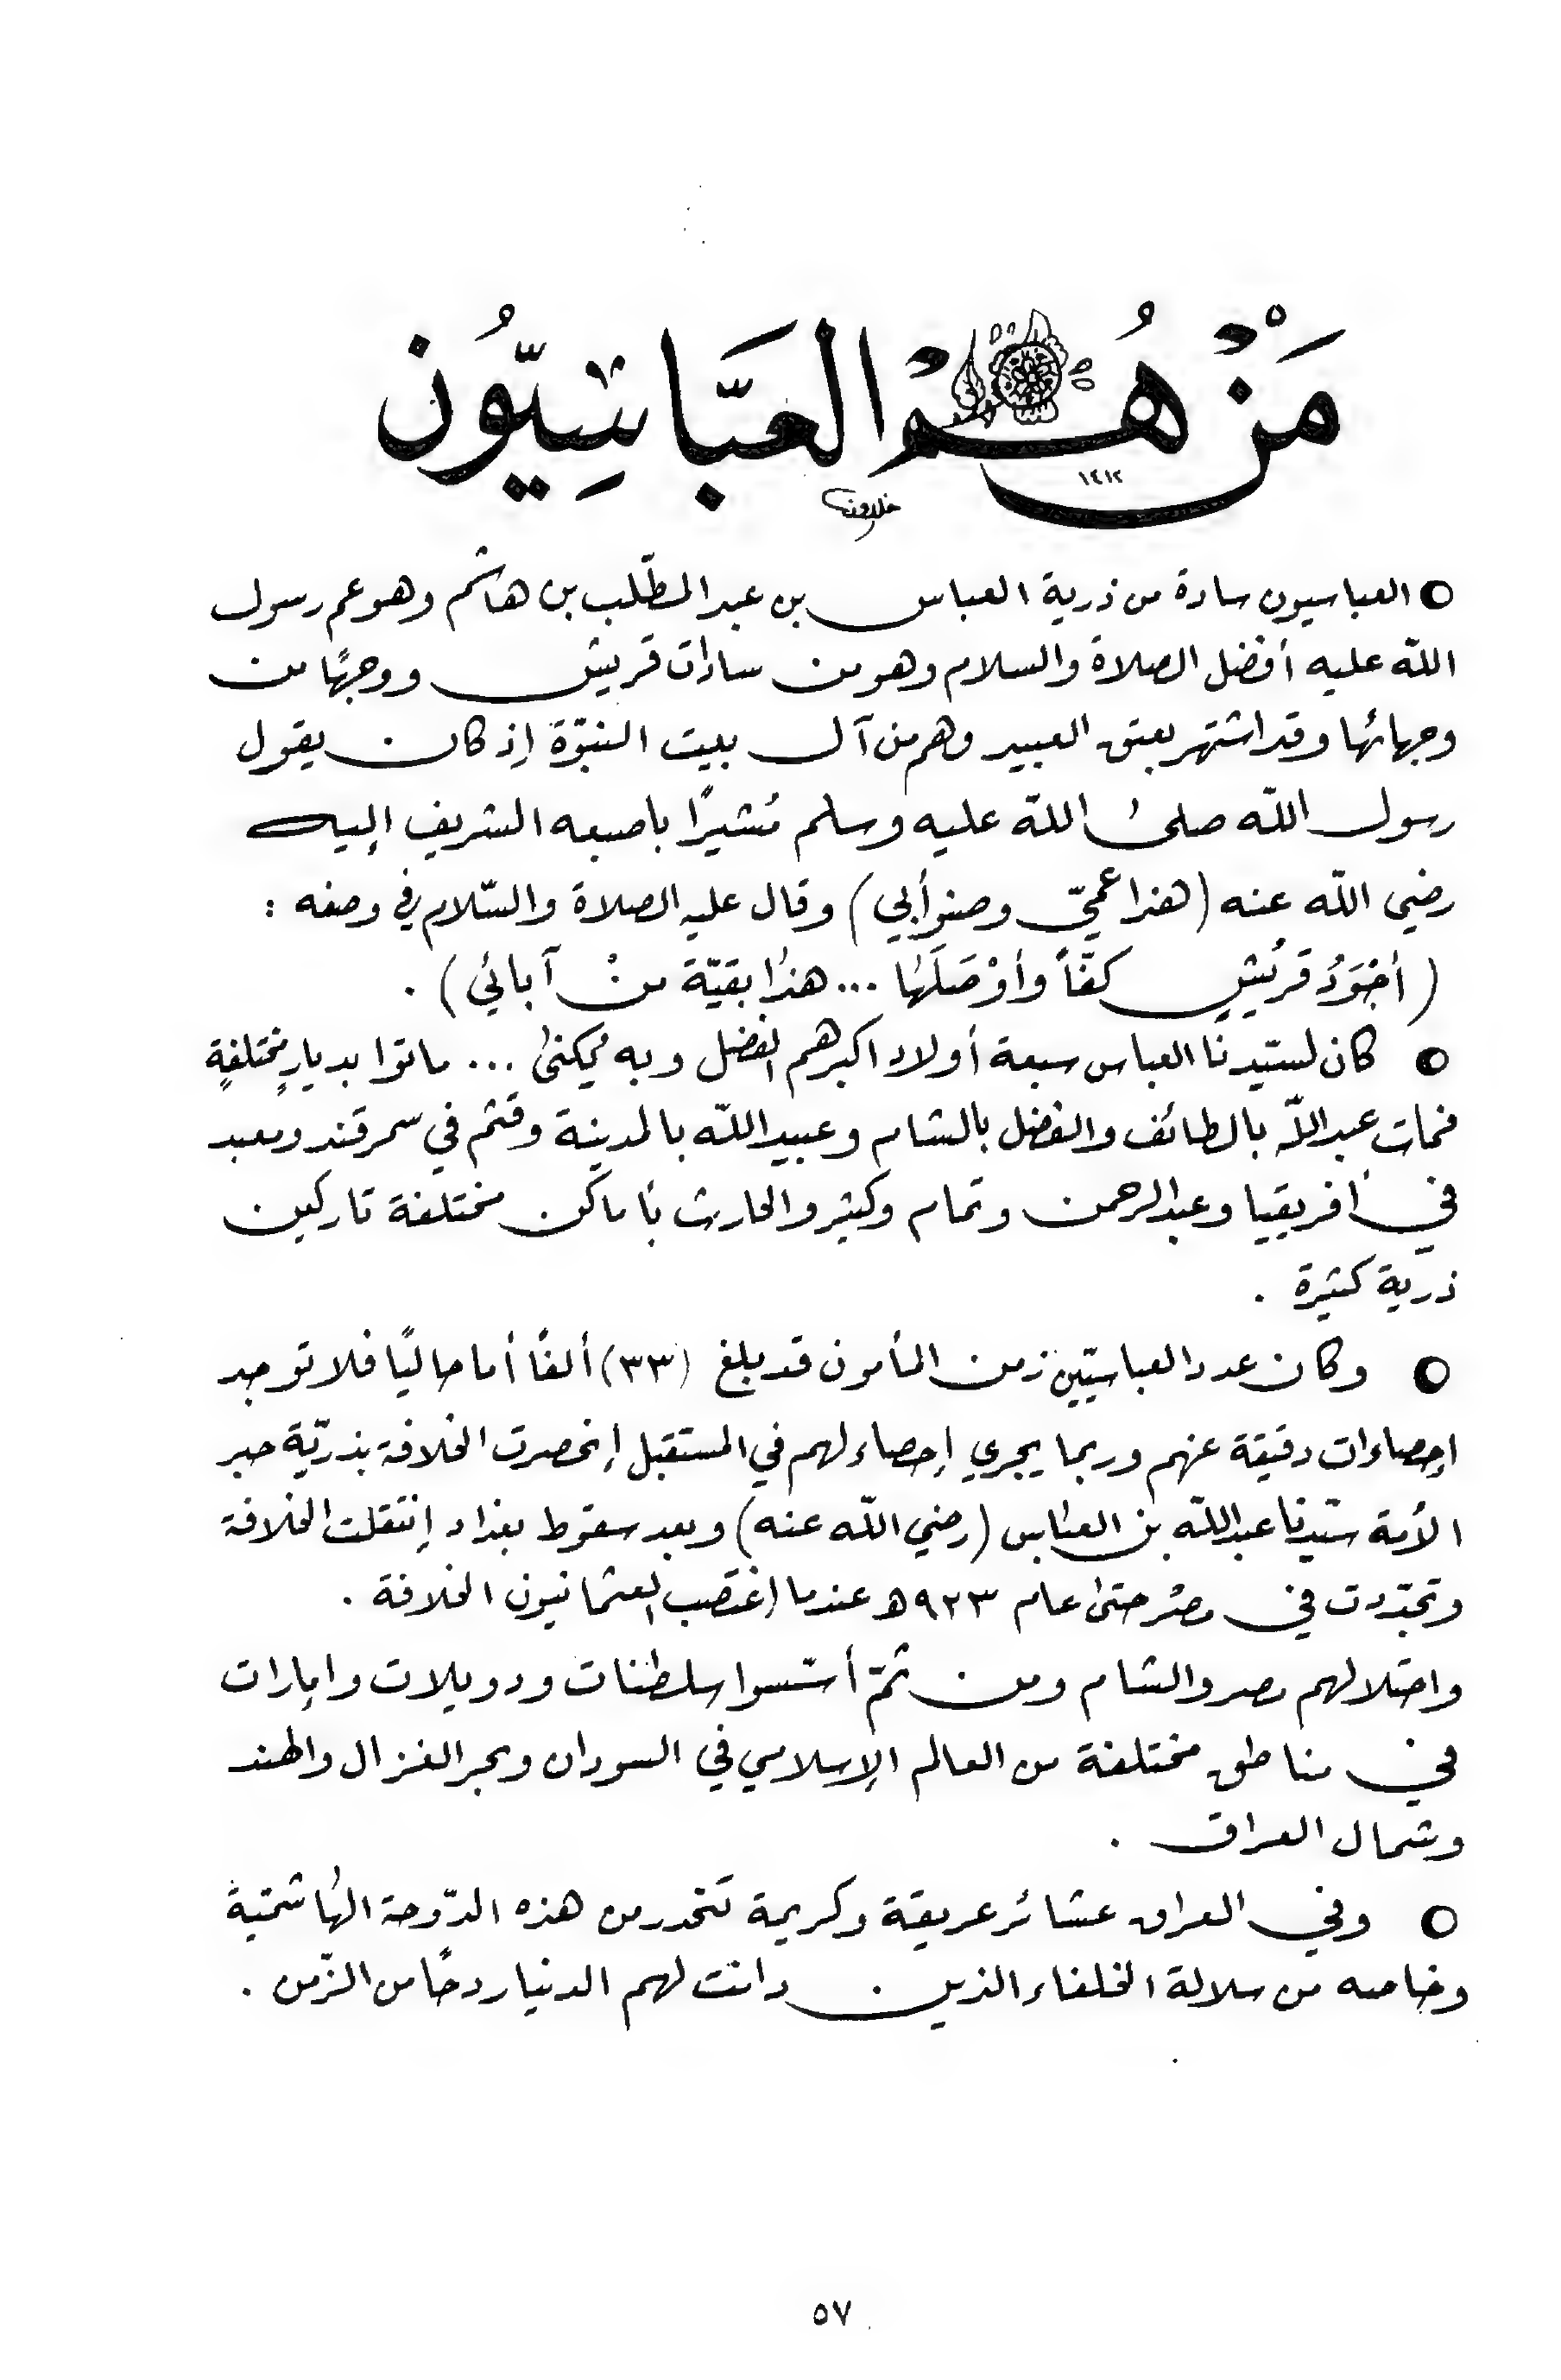 مَنْ هُمْ العَبَّاسِيُّون
١٤١٢
○ العباسيون سادة من ذرية العباس بن عبد المطّلب بن هاشم وهو عم رسول
اللّه عليه أفضل الصلاة والسلام وهو من سادات قريش ووجهًا من
وجهائها وقد اشتهر بعتق العبيد وهم من آل بيت النبوّة إذ كان يقول
رسول اللّه صلى اللّه عليه وسلم مُشيرًا باصبعه الشريف إليه
رضي اللّه عنه (هذا عمّي وصنو أبي) وقال عليه الصلاة والسّلام في وصفه :
(أجْوَدُ قريشٍ كفّاً وأوْصَلَها ... هذا بقيّة منْ آبائي) .
○ كان لسيّدنا العباس سبعة أولاد اكبرهم الفضل وبه يُمكنى ... ماتوا بديارٍ مختلفةٍ
فمات عبد اللّه بالطائف والفضل بالشام وعبيد اللّه بالمدينة وقثم في سمرقند ومعبد
في أفريقيا وعبد الرحمن وتمام وكثير والحارث بأماكن مختلفة تاركين
ذرية كثيرة .
○ وكان عدد العباسيّين زمن المأمون قد بلغ (٣٣) ألفًا أما حاليًا فلا توجد
إحصاءات دقيقة عنهم وربما يجري إحصاء لهم في المستقبل إنحصرت الخلافة بذريّة حبر
الأمة سيّدنا عبد اللّه بن العباس (رضي اللّه عنه) وبعد سقوط بغداد إنتقلت الخلافة
وتجدّدت في مصْر حتى عام ٩٢٣هـ عندما إغتصب العثمانيون الخلافة .
واحتلالهم مصر والشام ومن ثمّ أسّسوا سلطنات ودويلات وامارات
في مناطق مختلفة من العالم الإسلامي في السودان وبحر الغزال والهند
وشمال العراق .
○ وفي العراق عشائر عريقة وكريمة تنحدر من هذه الدّوحة الهاشميّة
وخاصه من سلالة الخلفاء الذين دانت لهم الدنيا ردحًا من الزّمن .
٥٧